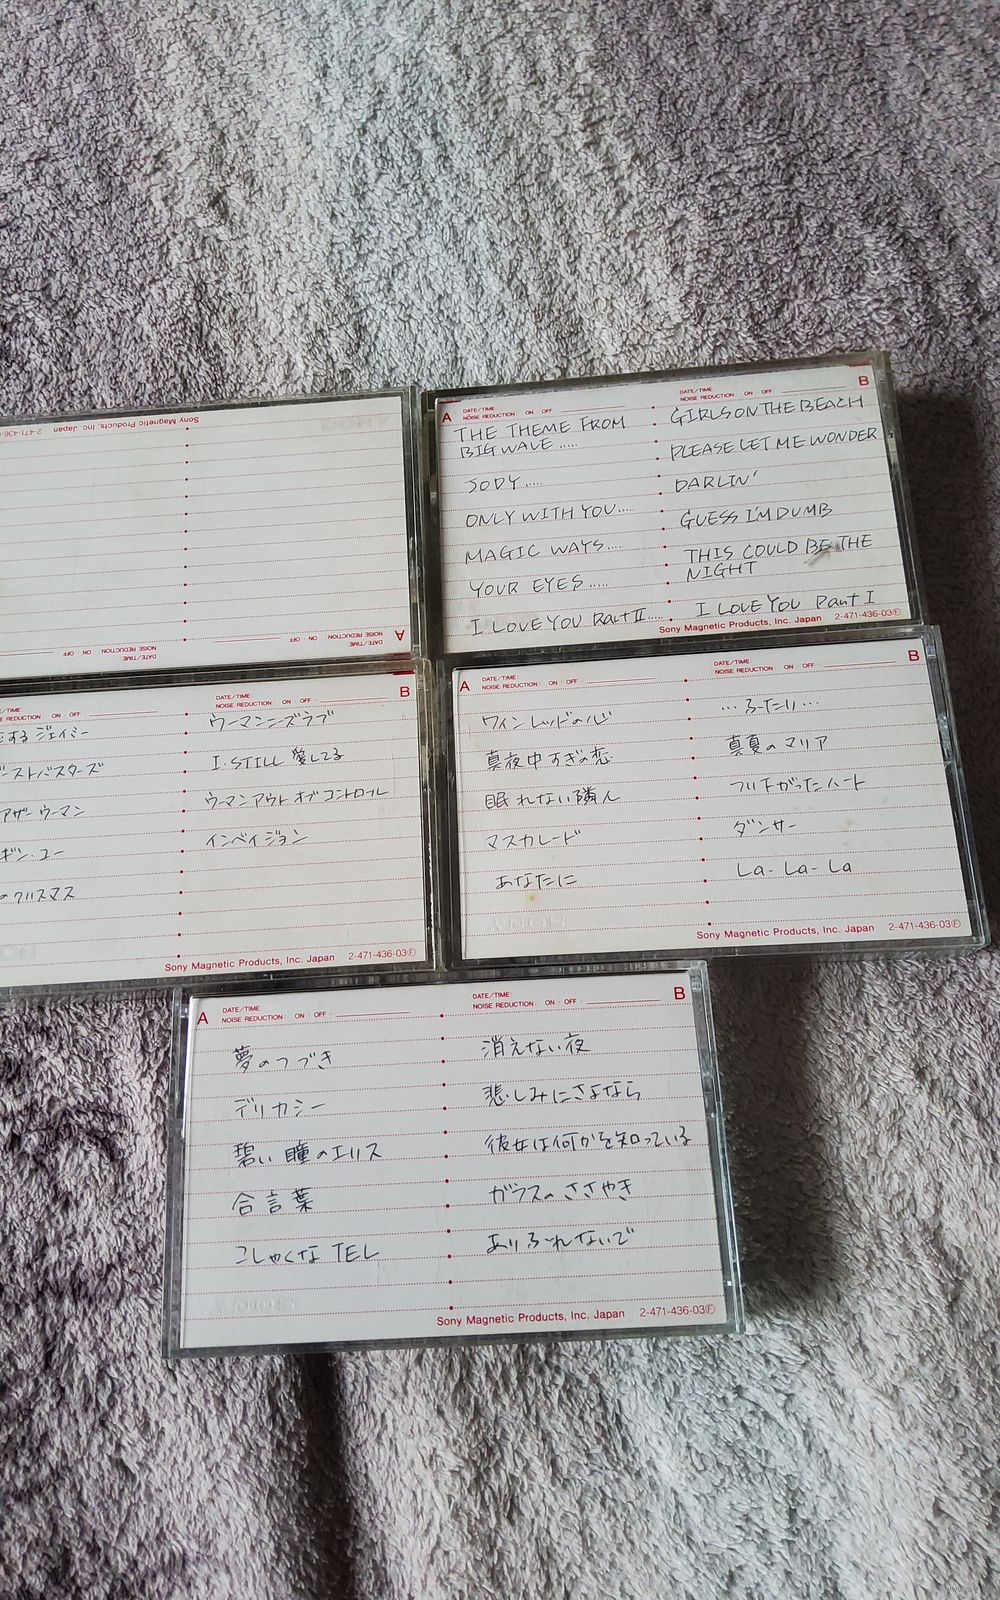 Sony Magnetic Products, Inc. Japan
A
DATE/TIME:
NOISE REDUCTION: ON OFF
DATE/TIME:
NOISE REDUCTION: ON OFF
A
DATE/TIME:
NOISE REDUCTION: ON OFF
THE THEME FROM
BIG WAVE .....
JODY .....
ONLY WITH YOU .....
MAGIC WAYS ....
YOUR EYES .....
I LOVE YOU Part II ....
B
DATE/TIME:
NOISE REDUCTION: ON OFF
GIRLS ON THE BEACH
PLEASE LET ME WONDER
DARLIN'
GUESS I'M DUMB
THIS COULD BE THE
NIGHT
I LOVE YOU Part I
Sony Magnetic Products, Inc. Japan 2-471-436-03Ⓕ
ON OFF
する ジェイミー
ーストバスターズ
アザー ウーマン
ギン・ユー
クリスマス
B
DATE/TIME:
NOISE REDUCTION: ON OFF
ウーマンニーズラブ
I・STILL 愛してる
ウーマンアウト オブ コントロール
インベイジョン
Sony Magnetic Products, Inc. Japan 2-471-436-03Ⓕ
A
DATE/TIME:
NOISE REDUCTION: ON OFF
ワインレッドの心
真夜中すぎの恋
眠れない隣人
マスカレード
あなたに
B
DATE/TIME:
NOISE REDUCTION: ON OFF
…ふたり…
真夏のマリア
つり下がったハート
ダンサー
La- La- La
Sony Magnetic Products, Inc. Japan 2-471-436-03Ⓕ
A
DATE/TIME:
NOISE REDUCTION: ON OFF
夢のつづき
デリカシー
碧い瞳のエリス
合言葉
こしゃくな TEL
B
DATE/TIME:
NOISE REDUCTION: ON OFF
消えない夜
悲しみにさよなら
彼女は何かを知っている
ガラスのささやき
ありふれないで
Sony Magnetic Products, Inc. Japan 2-471-436-03Ⓕ